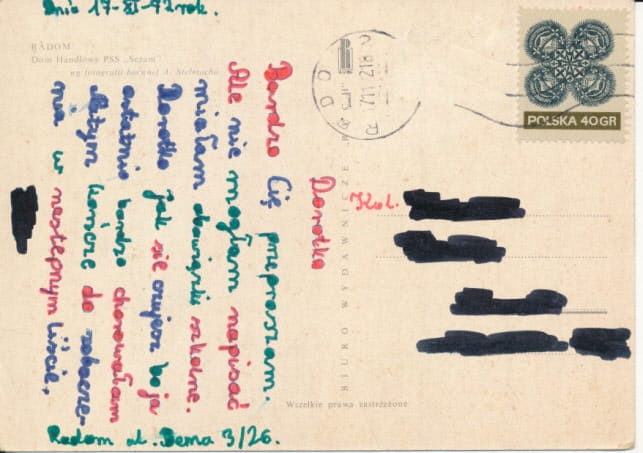 Dnia 17-XI-72 rok.
RADOM
Dom Handlowy PSS „Sezam”
wg fotografii barwnej A. Stelmacha
Dorotko
Bardzo Cię przepraszam.
Ale nie mogłam napisać
miałam obowiązki szkolne.
Dorotko jak się czujesz bo ja
ostatnio bardzo chorowałam
Natym kończę do zobacze-
nia w następnym liście,
Radom ul. Bema 3/26.
BIURO WYDAWNICZE
Wszelkie prawa zastrzeżone
POLSKA 40GR
Kol.